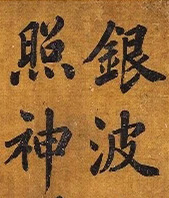 銀波
照神